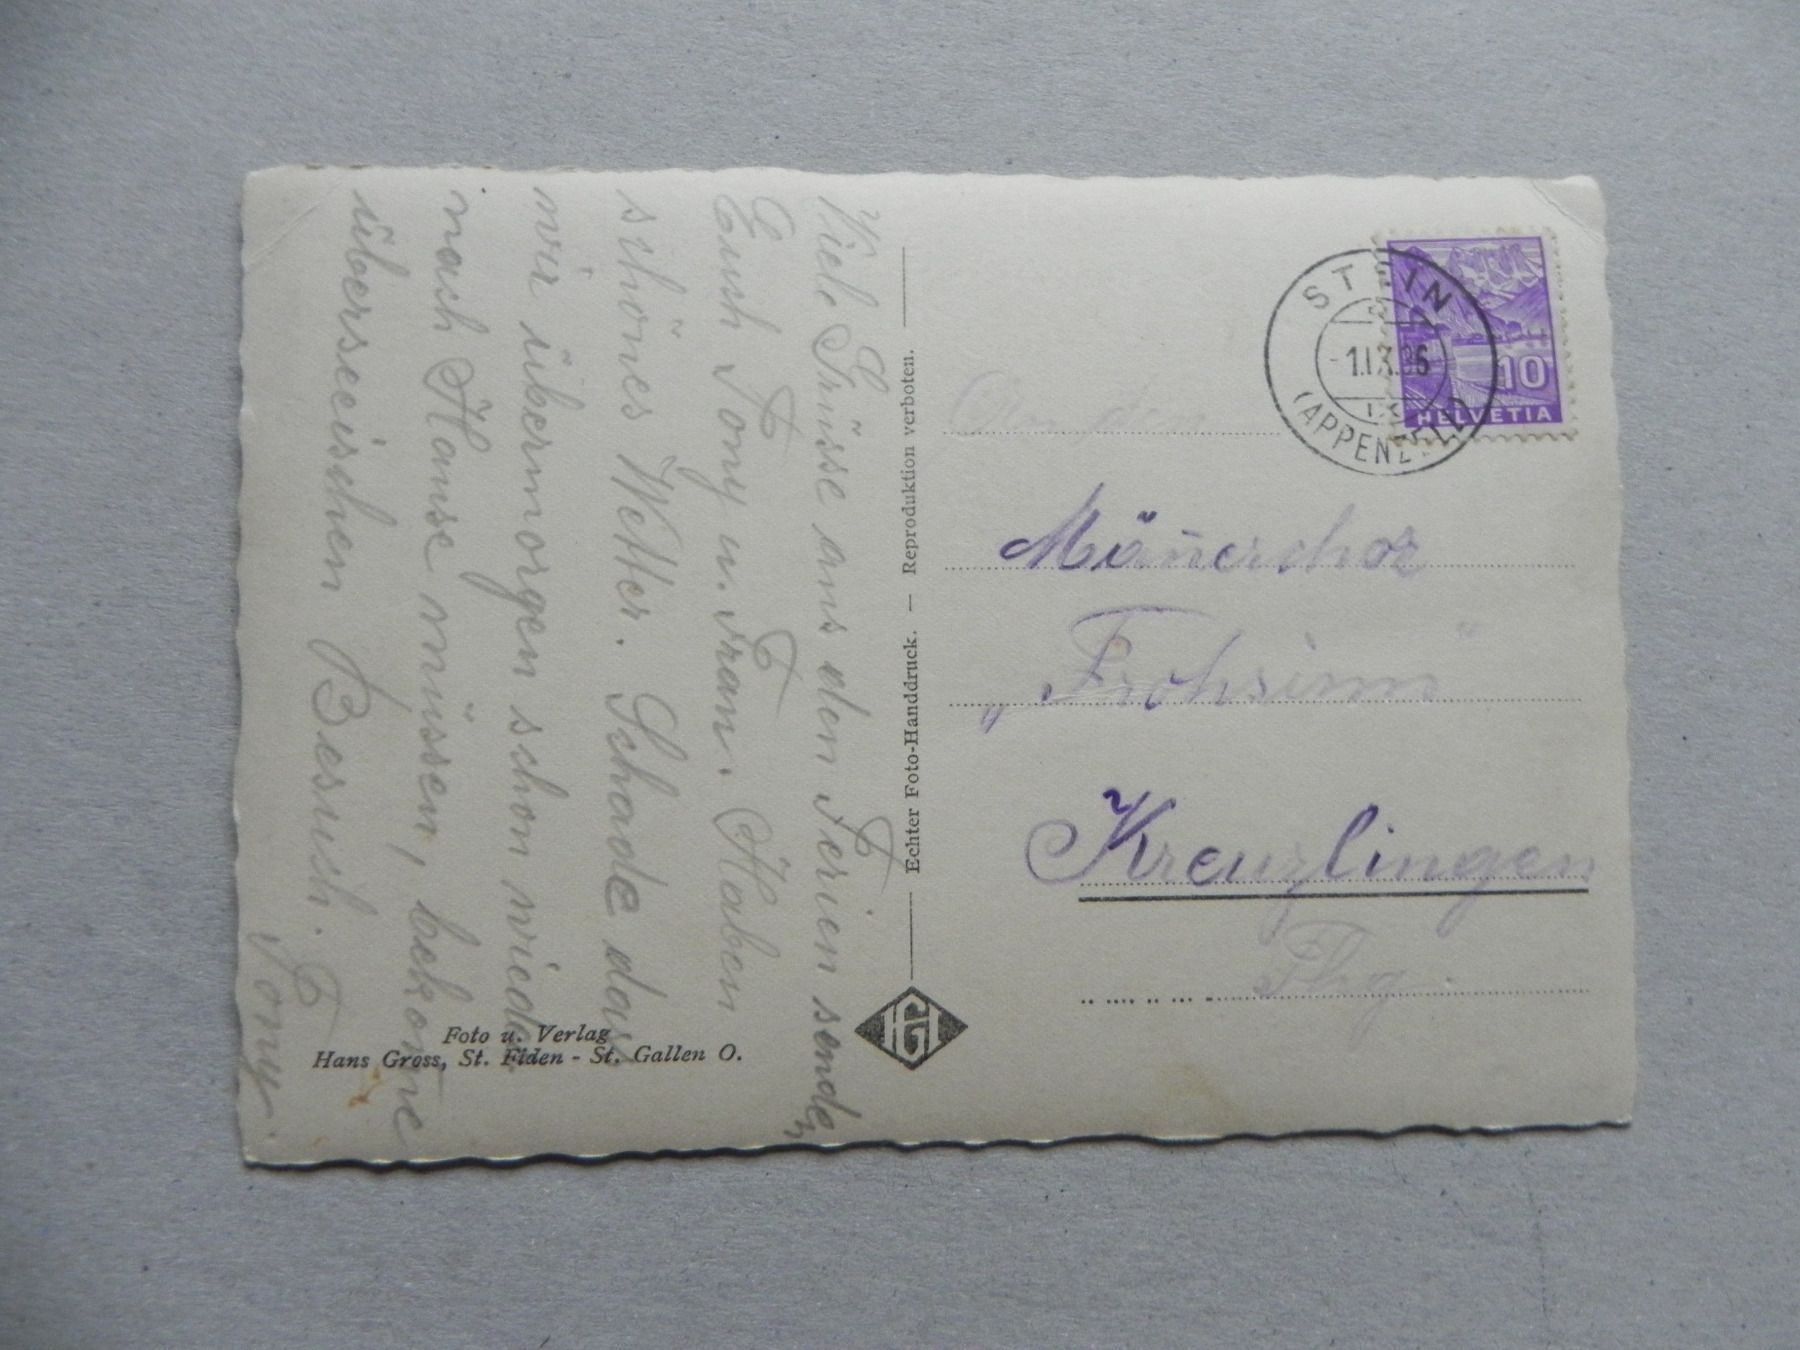 Viele Grüsse aus den Ferien senden
Euch Tony u. Frau. Haben
schönes Wetter. Schade das
wir übermorgen schon wieder
nach Hause müssen, bekom̄e
überseeischen Besuch.
Tony.
Foto u. Verlag
Hans Gross, St. Fiden - St. Gallen O.
Echter Foto-Handdruck. — Reproduktion verboten.
HG
STEIN
-1.IX.36
IX
(APPENZELL)
10
HELVETIA
An den
Män̄erchor
„Frohsinn"
Kreuzlingen
Thg.